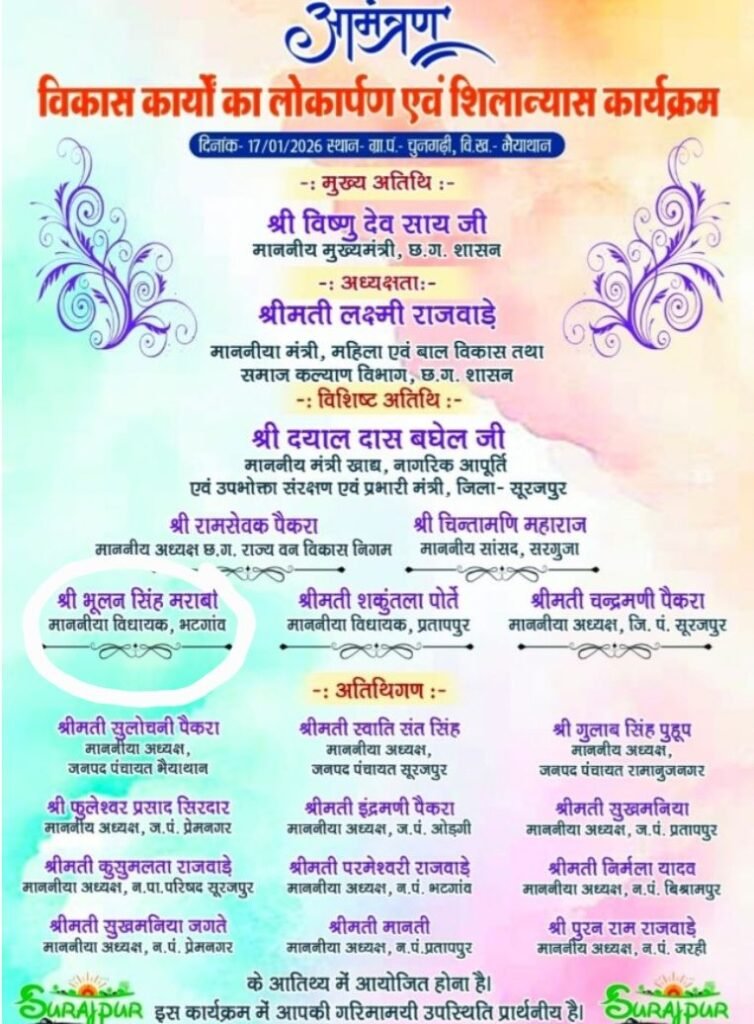 आमंत्रण
विकास कार्यों का लोकार्पण एवं शिलान्यास कार्यक्रम
दिनांक- 17/01/2026 स्थान- ग्रा.पं.- चुनगढ़ी, वि.ख.- भैयाथान
-: मुख्य अतिथि :-
श्री विष्णु देव साय जी
माननीय मुख्यमंत्री, छ.ग. शासन
-: अध्यक्षता:-
श्रीमती लक्ष्मी राजवाड़े
माननीया मंत्री, महिला एवं बाल विकास तथा
समाज कल्याण विभाग, छ.ग. शासन
-: विशिष्ट अतिथि :-
श्री दयाल दास बघेल जी
माननीय मंत्री खाद्य, नागरिक आपूर्ति
एवं उपभोक्ता संरक्षण एवं प्रभारी मंत्री, जिला- सूरजपुर
श्री रामसेवक पैकरा श्री चिन्तामणि महाराज
माननीय अध्यक्ष छ.ग. राज्य वन विकास निगम माननीय सांसद, सरगुजा
श्री भूलन सिंह मराबी श्रीमती शकुंतला पोर्ते श्रीमती चन्द्रमणी पैकरा
माननीया विधायक, भटगांव माननीया विधायक, प्रतापपुर माननीया अध्यक्ष, जि. पं. सूरजपुर
-: अतिथिगण :-
श्रीमती सुलोचनी पैकरा श्रीमती स्वाति संत सिंह श्री गुलाब सिंह पुहूप
माननीया अध्यक्ष, माननीया अध्यक्ष, माननीय अध्यक्ष,
जनपद पंचायत भैयाथान जनपद पंचायत सूरजपुर जनपद पंचायत रामानुजनगर
श्री फुलेश्वर प्रसाद सिरदार श्रीमती इंद्रमणी पैकरा श्रीमती सुखमनिया
माननीय अध्यक्ष, ज.पं. प्रेमनगर माननीया अध्यक्ष, ज.पं. ओड़गी माननीया अध्यक्ष, ज.पं. प्रतापपुर
श्रीमती कुसुमलता राजवाड़े श्रीमती परमेश्वरी राजवाड़े श्रीमती निर्मला यादव
माननीया अध्यक्ष, न.पा.परिषद सूरजपुर माननीया अध्यक्ष, न.पं. भटगांव माननीया अध्यक्ष, न.पं. बिश्रामपुर
श्रीमती सुखमनिया जगते श्रीमती मानती श्री पुरन राम राजवाड़े
माननीया अध्यक्ष, न.पं. प्रेमनगर माननीया अध्यक्ष, न.पं.प्रतापपुर माननीय अध्यक्ष, न.पं. जरही
के आतिथ्य में आयोजित होना है।
SURAJPUR इस कार्यक्रम में आपकी गरिमामयी उपस्थिति प्रार्थनीय है। SURAJPUR